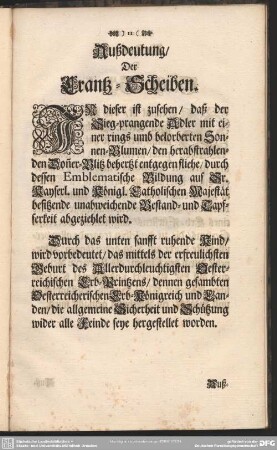 ) 11 (
Außdeutung/
Der
Crantz-Scheiben.
IN dieser ist zusehen/ daß der
Sieg-prangende Adler mit ei-
ner rings umb belorberten Son-
nen-Blumen/ den herabstrahlen-
den Doñer-Blitz behertzt entgegen fliehe/ durch
dessen Emblematische Bildung auf Sr.
Kayserl. und Königl. Catholischen Majestät
besitzende unabweichende Bestand- und Tapf-
ferkeit abgeziehlet wird.
Durch das unten sanfft ruhende Kind/
wird vorbedeutet/ das mittels der erfreulichsten
Geburt des Allerdurchleuchtigsten Oester-
reichischen Erb-Printzens/ dennen gesambten
Oesterreicherischen Erb-Königreich und Lan-
den/ die allgemeine Sicherheit und Schützung
wider alle Feinde seye hergestellet worden.
Auß-
DFG